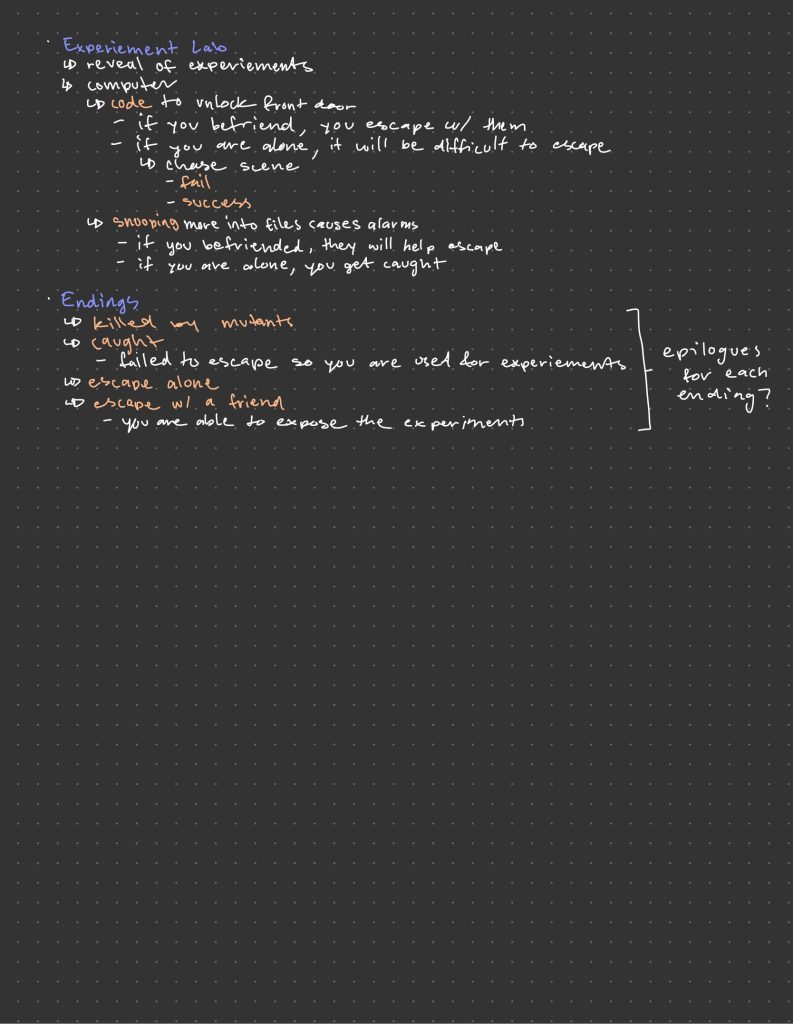 · Experiement Lab
↳ reveal of experiements
↳ computer
↳ code to unlock front door
- if you befriend, you escape w/ them
- if you are alone, it will be difficult to escape
↳ chase scene
- fail
- success
↳ snooping more into files causes alarms
- if you befriended, they will help escape
- if you are alone, you get caught
· Endings
↳ killed by mutants
↳ caught
- failed to escape so you are used for experiements
↳ escape alone
↳ escape w/ a friend
- you are able to expose the experiments
epilogues
for each
ending?